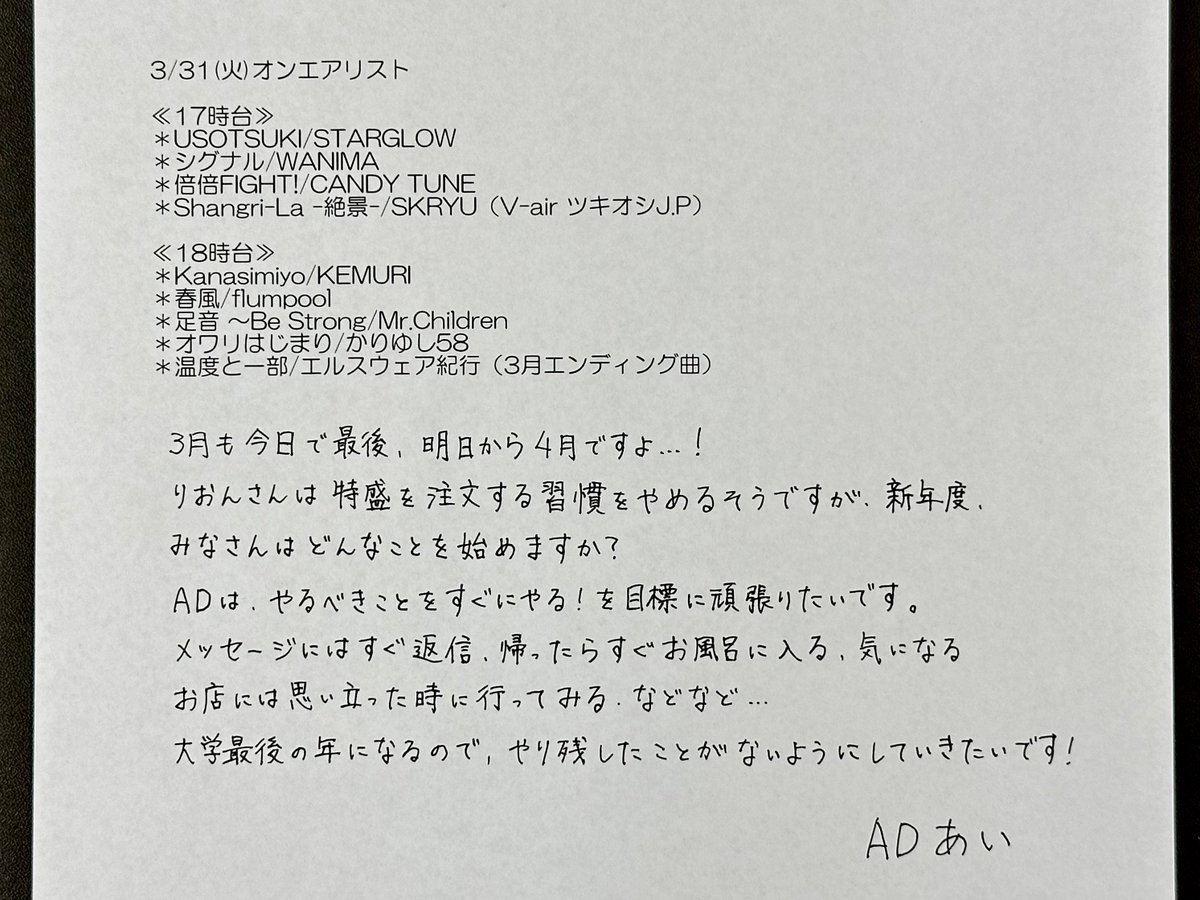 3/31(火)オンエアリスト
≪17時台≫
＊USOTSUKI/STARGLOW
＊シグナル/WANIMA
＊倍倍FIGHT!/CANDY TUNE
＊Shangri-La -絶景-/SKRYU（V-air ツキオシJ.P）
≪18時台≫
＊Kanasimiyo/KEMURI
＊春風/flumpool
＊足音 ～Be Strong/Mr.Children
＊オワリはじまり/かりゆし58
＊温度と一部/エルスウェア紀行（3月エンディング曲）
3月も今日で最後、明日から4月ですよ…！
りおんさんは特盛を注文する習慣をやめるそうですが、新年度、
みなさんはどんなことを始めますか？
ADは、やるべきことをすぐにやる！を目標に頑張りたいです。
メッセージにはすぐ返信、帰ったらすぐお風呂に入る、気になる
お店には思い立った時に行ってみる、などなど…
大学最後の年になるので、やり残したことがないようにしていきたいです！
ADあい